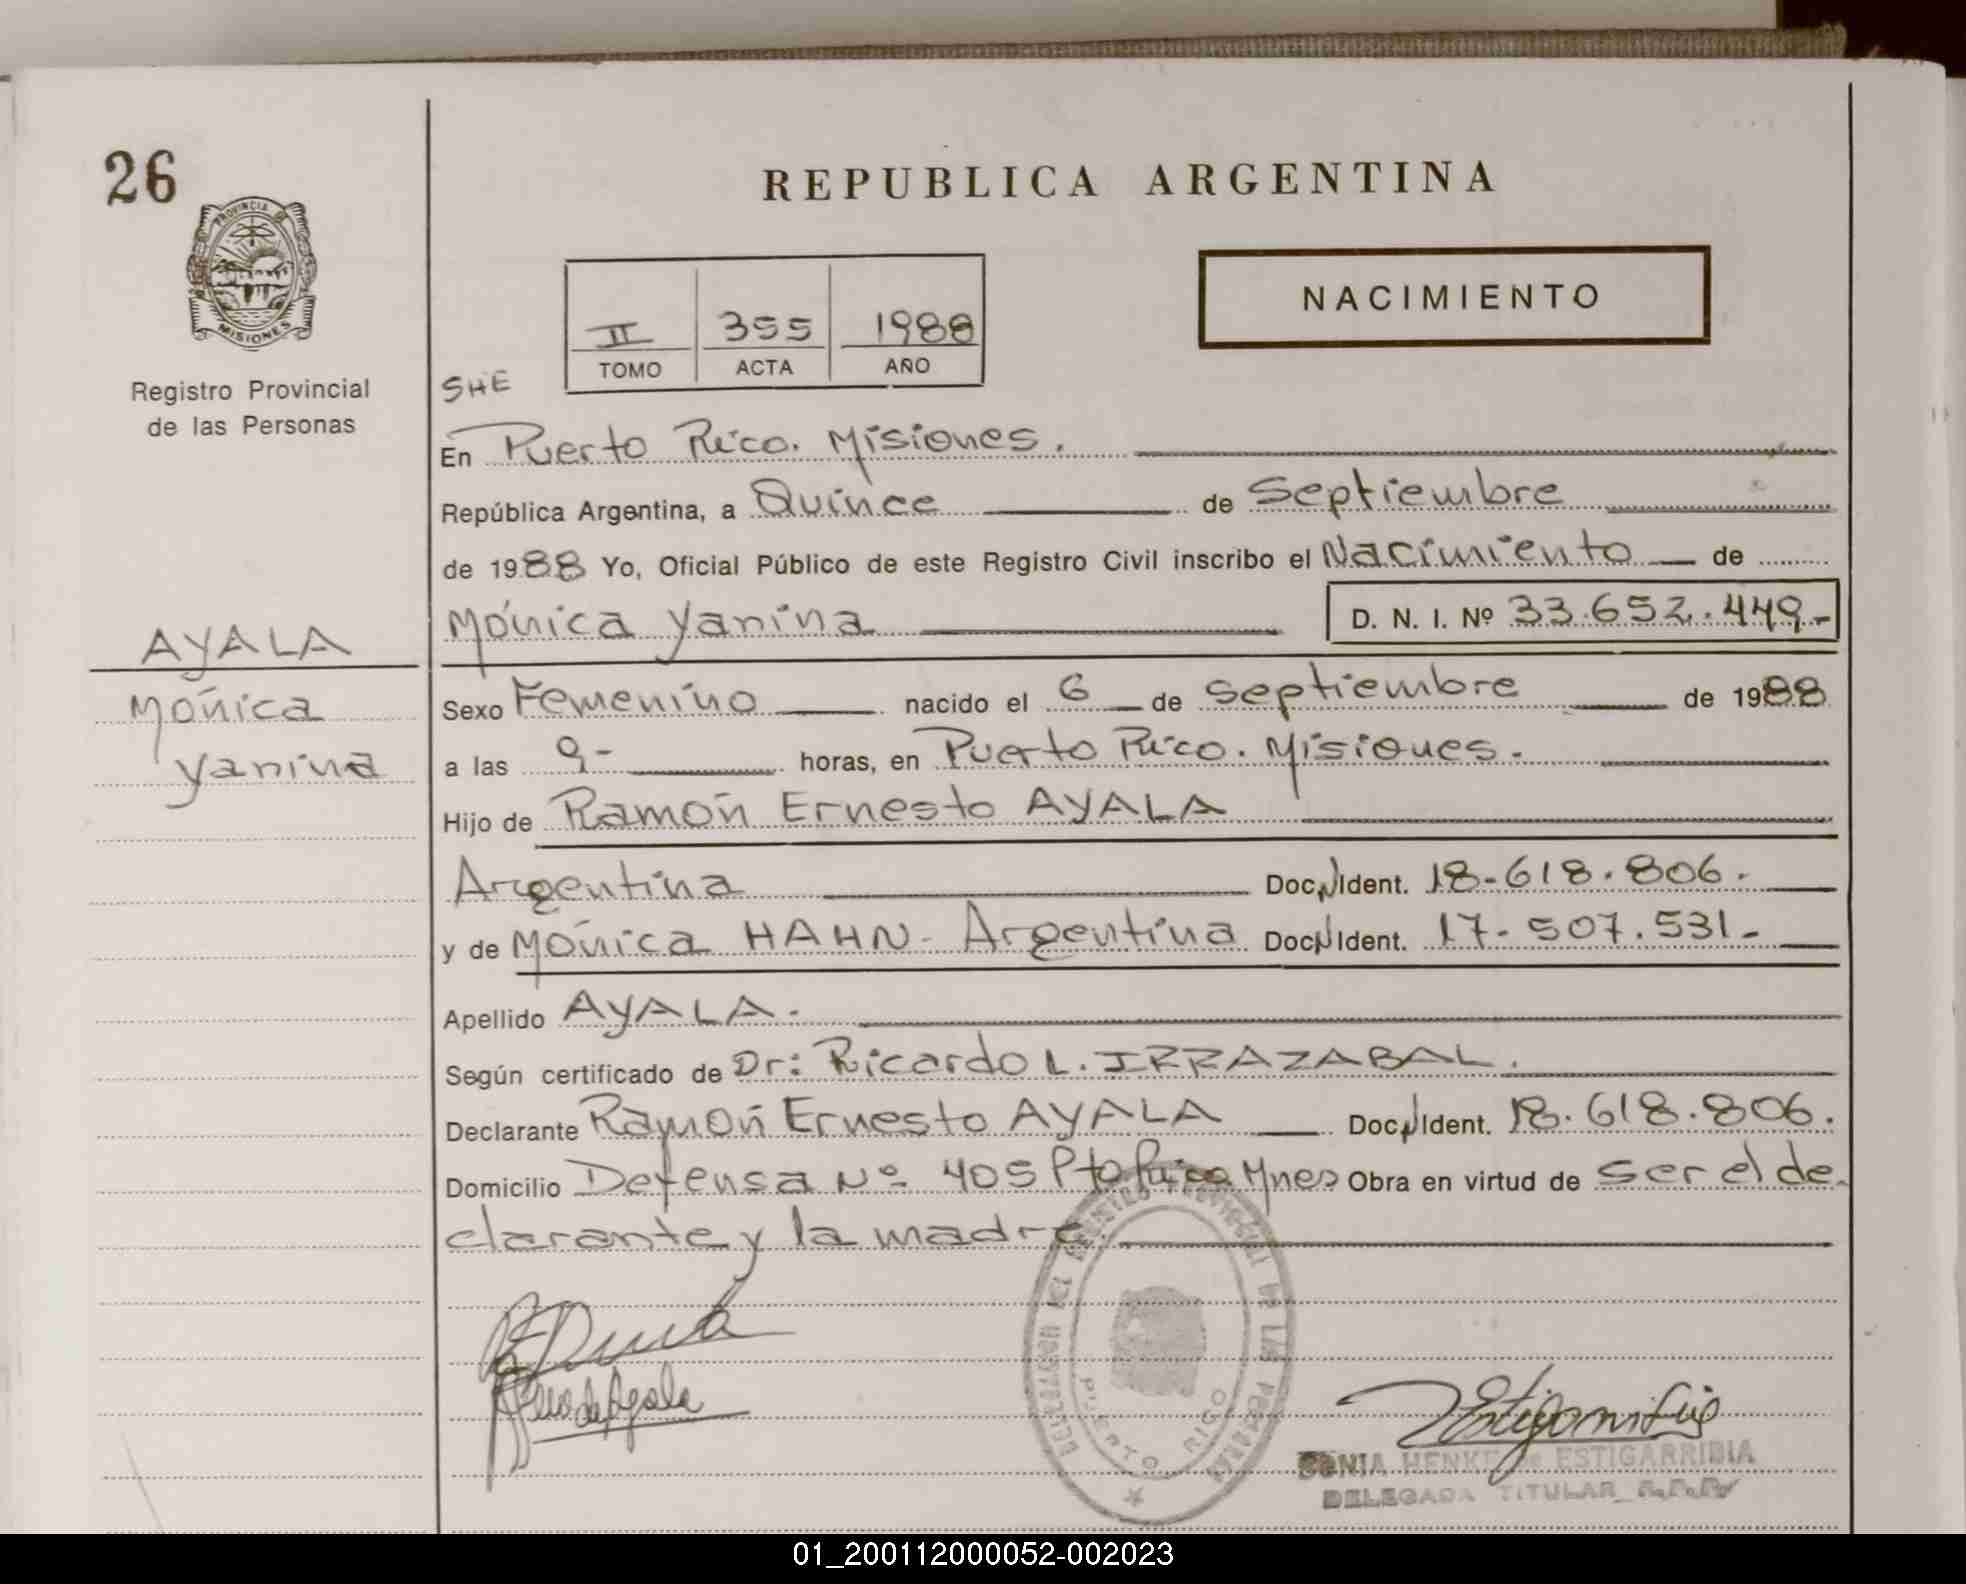 26
REPUBLICA ARGENTINA
PROVINCIA DE
MISIONES
NACIMIENTO
II 355 1988
TOMO ACTA AÑO
Registro Provincial
de las Personas
SHE
En Puerto Rico. Misiones.
República Argentina, a Quince de Septiembre
de 1988 Yo, Oficial Público de este Registro Civil inscribo el Nacimiento de
Mónica Yanina D. N. I. Nº 33.652.449-
AYALA
Mónica
Yanina
Sexo Femenino nacido el 6 de Septiembre de 1988
a las 9- horas, en Puerto Rico. Misiones.
Hijo de Ramón Ernesto AYALA
Argentina Doc. Ident. 18-618.806.
y de Mónica HAHN- Argentina Doc. Ident. 17-507.531-
Apellido AYALA.
Según certificado de Dr: Ricardo L. IRRAZABAL.
Declarante Ramón Ernesto AYALA Doc. Ident. 18.618.806.
Domicilio Defensa Nº 405 Pto Rico Mnes Obra en virtud de ser el de-
clarante y la madre
PUERTO RICO
de Ayala
SONIA HENKE de ESTIGARRIBIA
DELEGADA TITULAR R.P.P.
01_200112000052-002023